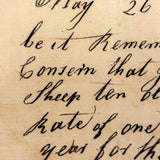 May 26
be it Remem
Consern that
Sheep ten ol
Rate of one
year for th